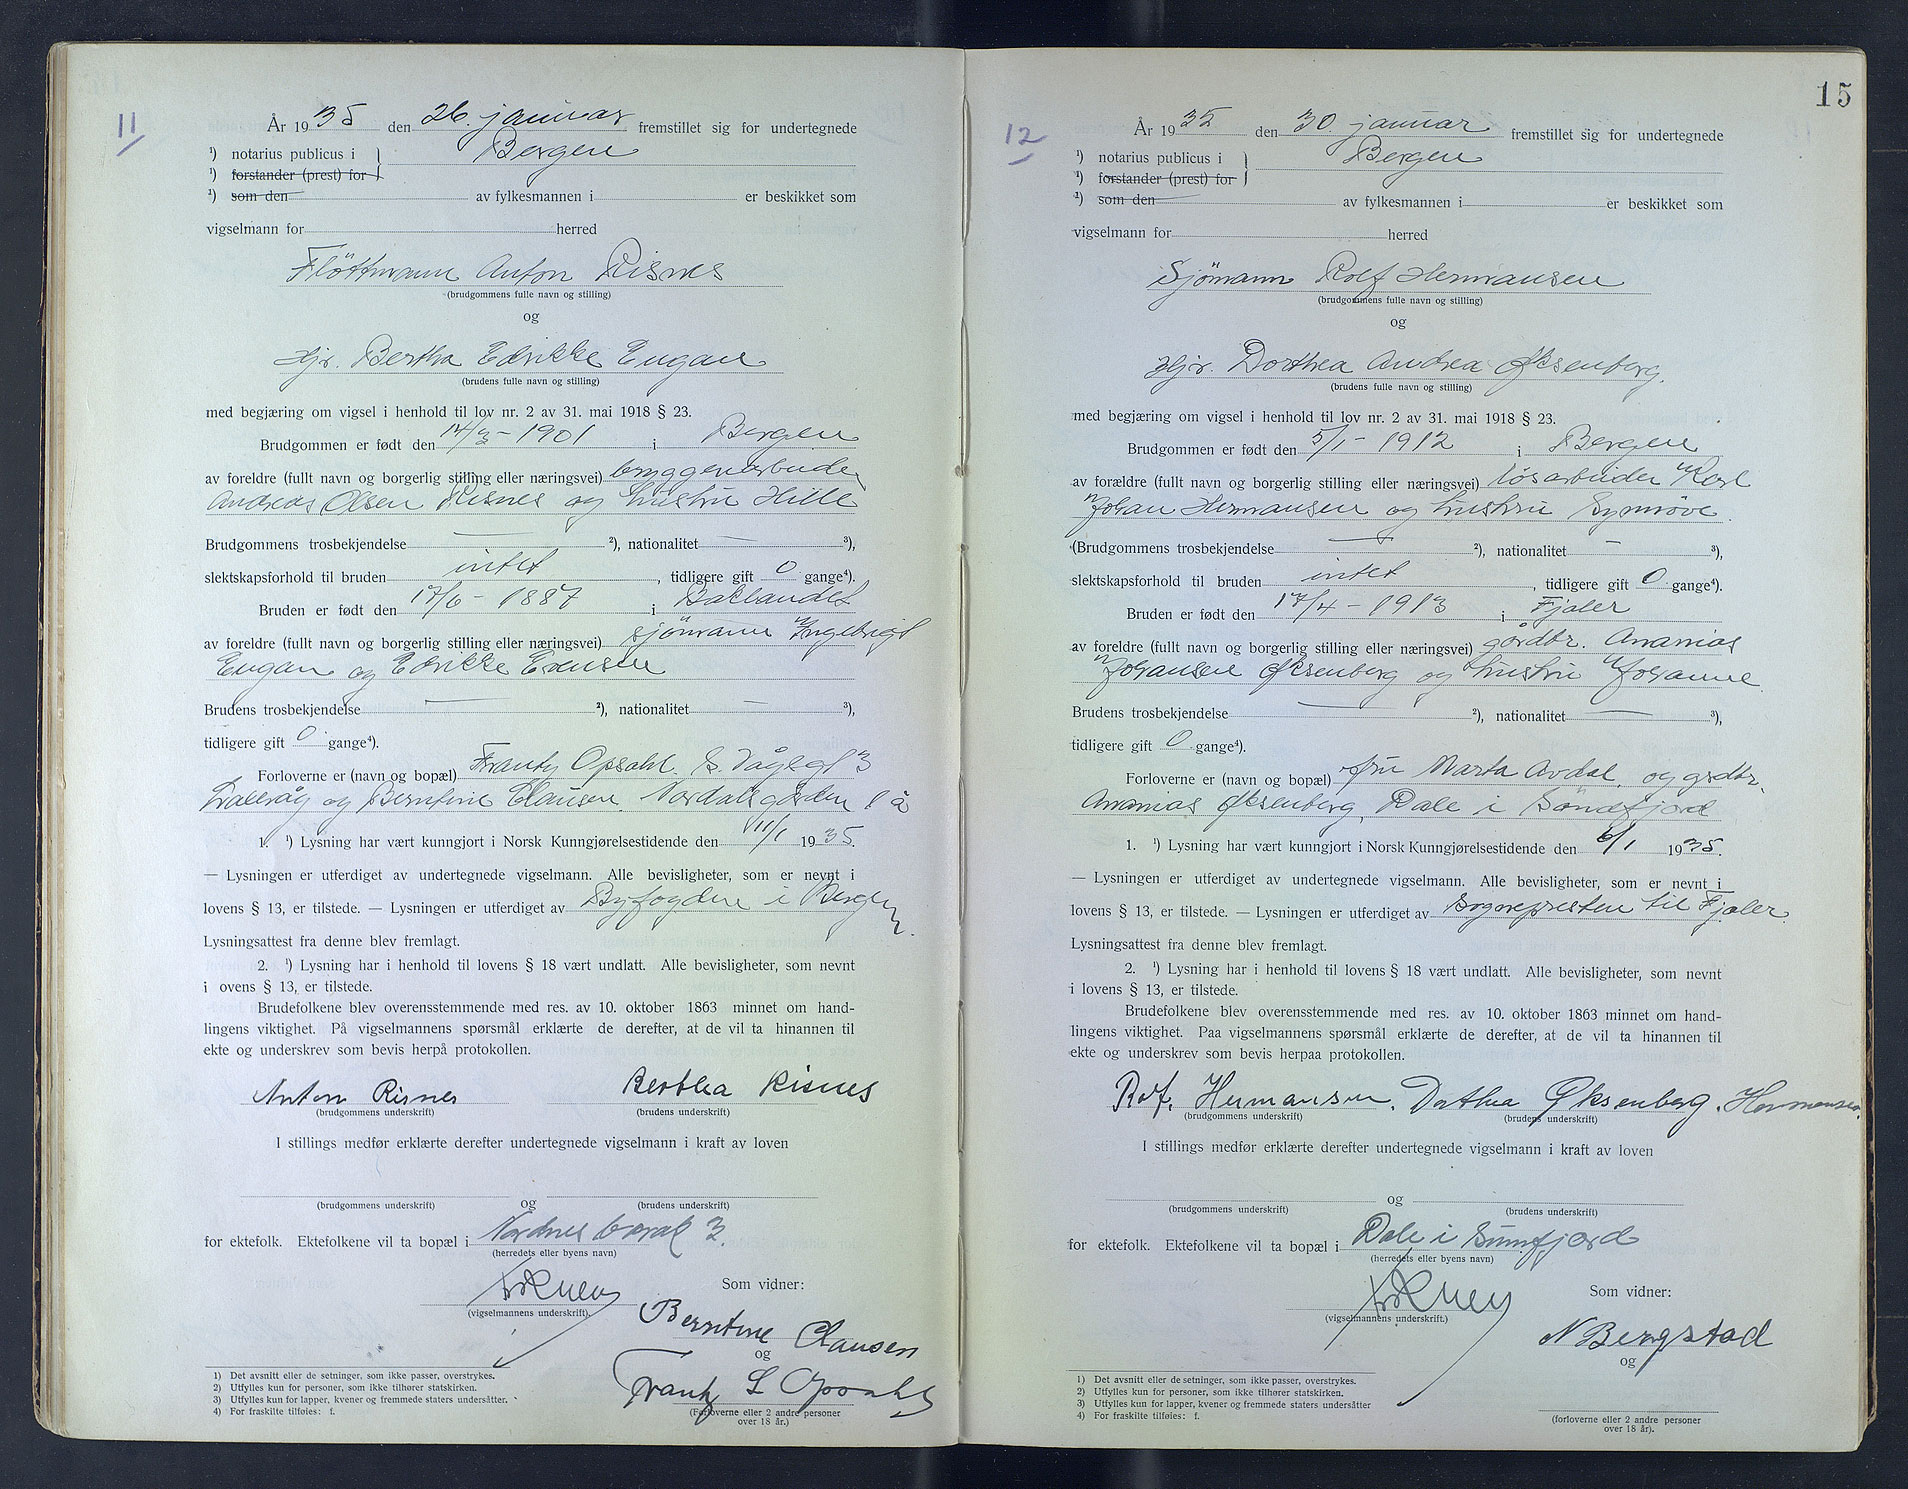 11
År 1935 den 26. januar fremstillet sig for undertegnede
¹) notarius publicus i } Bergen
¹) forstander (prest) for
¹) som den av fylkesmannen i er beskikket som
vigselmann for herred
Fløttmann Anton Risnes
(brudgommens fulle navn og stilling)
og
Hjv. Bertha Edrikke Eugan
(brudens fulle navn og stilling)
med begjæring om vigsel i henhold til lov nr. 2 av 31. mai 1918 § 23.
Brudgommen er født den 14/3 - 1901 i Bergen
av foreldre (fullt navn og borgerlig stilling eller næringsvei) bryggenarbeider
Andreas Olsen Risnes og hustru Hille
Brudgommens trosbekjendelse — ²), nationalitet — ³),
slektskapsforhold til bruden intet, tidligere gift 0 gange⁴).
Bruden er født den 17/6 - 1887 i Baklandet
av foreldre (fullt navn og borgerlig stilling eller næringsvei) sjømann Ingebrigt
Eugan og Edrikke Evensen
Brudens trosbekjendelse — ²), nationalitet — ³),
tidligere gift 0 gange⁴).
Forloverne er (navn og bopæl) Frantz Opsahl. S. 3
og Berntine Clausen. Nordalsgården 1 a
1. ¹) Lysning har vært kunngjort i Norsk Kunngjørelsestidende den 11/1 1935.
— Lysningen er utferdiget av undertegnede vigselmann. Alle bevisligheter, som er nevnt i
lovens § 13, er tilstede. — Lysningen er utferdiget av Byfogden i Bergen.
Lysningsattest fra denne blev fremlagt.
2. ¹) Lysning har i henhold til lovens § 18 vært undlatt. Alle bevisligheter, som nevnt
i ovens § 13, er tilstede.
Brudefolkene blev overensstemmende med res. av 10. oktober 1863 minnet om hand-
lingens viktighet. På vigselmannens spørsmål erklærte de derefter, at de vil ta hinannen til
ekte og underskrev som bevis herpå protokollen.
Anton Risnes Berthea Risnes
(brudgommens underskrift) (brudens underskrift)
I stillings medfør erklærte derefter undertegnede vigselmann i kraft av loven
og
(brudgommens underskrift) (brudens underskrift)
for ektefolk. Ektefolkene vil ta bopæl i Nordnes barak 3.
(herredets eller byens navn)
Som vidner:
(vigselmannens underskrift).
Berntine Clausen
og
Frantz L Opsahl
(Forloverne eller 2 andre personer
over 18 år.)
1) Det avsnitt eller de setninger, som ikke passer, overstrykes.
2) Utfylles kun for personer, som ikke tilhører statskirken.
3) Utfylles kun for lapper, kvener og fremmede staters undersåtter.
4) For fraskilte tilføies: f.
15
12
År 1935 den 30. januar fremstillet sig for undertegnede
¹) notarius publicus i } Bergen
¹) forstander (prest) for
¹) som den av fylkesmannen i er beskikket som
vigselmann for herred
Sjömann Rolf Hermansen
(brudgommens fulle navn og stilling)
og
Hjv. Dorthea Andrea Øksenberg.
(brudens fulle navn og stilling)
med begjæring om vigsel i henhold til lov nr. 2 av 31. mai 1918 § 23.
Brudgommen er født den 5/1 - 1912 i Bergen
av forældre (fullt navn og borgerlig stilling eller næringsvei) løsarbeider Karl
Johan Hermansen og hustru Synnøve.
(Brudgommens trosbekjendelse — ²), nationalitet — ³),
slektskapsforhold til bruden intet, tidligere gift 0 gange⁴).
Bruden er født den 17/4 - 1913 i Fjaler
av foreldre (fullt navn og borgerlig stilling eller næringsvei) gårdbr. Ananias
Johansen Øksenberg og hustru Johanne
Brudens trosbekjendelse — ²), nationalitet — ³),
tidligere gift 0 gange⁴).
Forloverne er (navn og bopæl) fru Marta Avdal, og grdbr.
Ananias Øksenberg, Dale i Søndfjord
1. ¹) Lysning har vært kunngjort i Norsk Kunngjørelsestidende den 6/1 1935.
— Lysningen er utferdiget av undertegnede vigselmann. Alle bevisligheter, som er nevnt i
lovens § 13, er tilstede. — Lysningen er utferdiget av Sognepresten til Fjaler.
Lysningsattest fra denne blev fremlagt.
2. ¹) Lysning har i henhold til lovens § 18 vært undlatt. Alle bevisligheter, som nevnt
i lovens § 13, er tilstede.
Brudefolkene blev overensstemmende med res. av 10. oktober 1863 minnet om hand-
lingens viktighet. Paa vigselmannens spørsmål erklærte de derefter, at de vil ta hinannen til
ekte og underskrev som bevis herpaa protokollen.
Rolf. Hermansen. Dorthea Øksenberg. Hermansen.
(brudgommens underskrift) (brudens underskrift)
I stillings medfør erklærte derefter undertegnede vigselmann i kraft av loven
og
(brudgommens underskrift) (brudens underskrift)
for ektefolk. Ektefolkene vil ta bopæl i Dale i Sunnfjord
(herredets eller byens navn)
Som vidner:
(vigselmannens underskrift.)
N Bergstad
og
(forloverne eller 2 andre personer
over 18 år).
1) Det avsnitt eller de setninger, som ikke passer, overstrykes.
2) Utfylles kun for personer, som ikke tilhører statskirken.
3) Utfylles kun for lapper, kvener og fremmede staters undersåtter
4) For fraskilte tilføies: f.